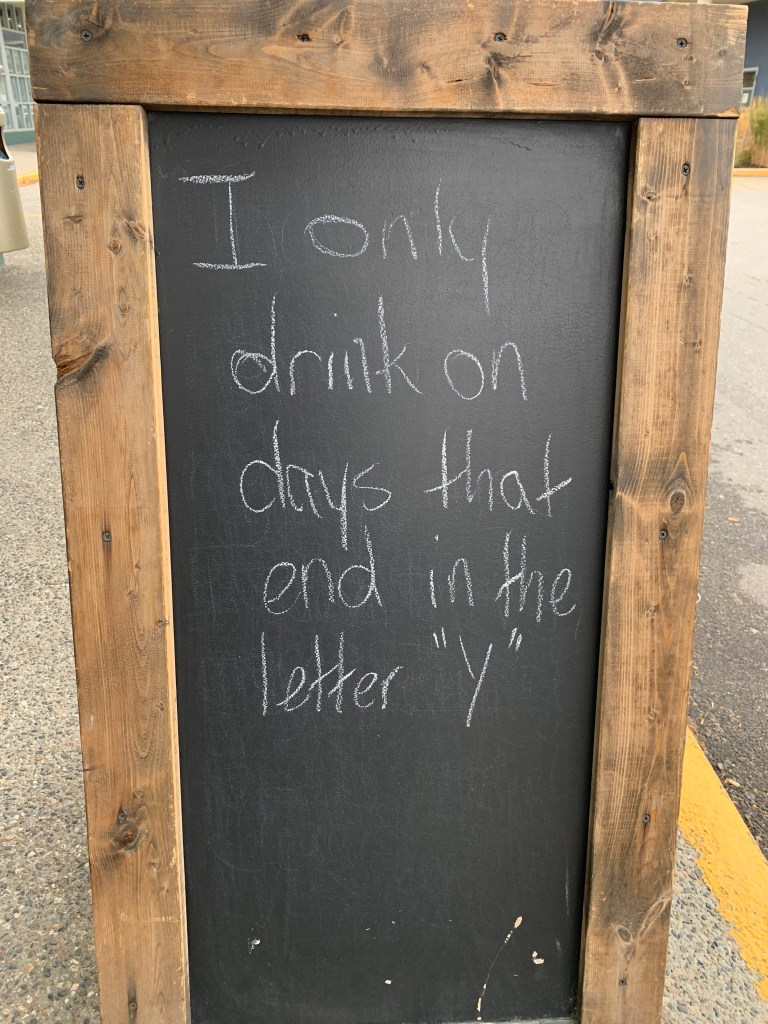 I only
drink on
days that
end in the
letter "Y"